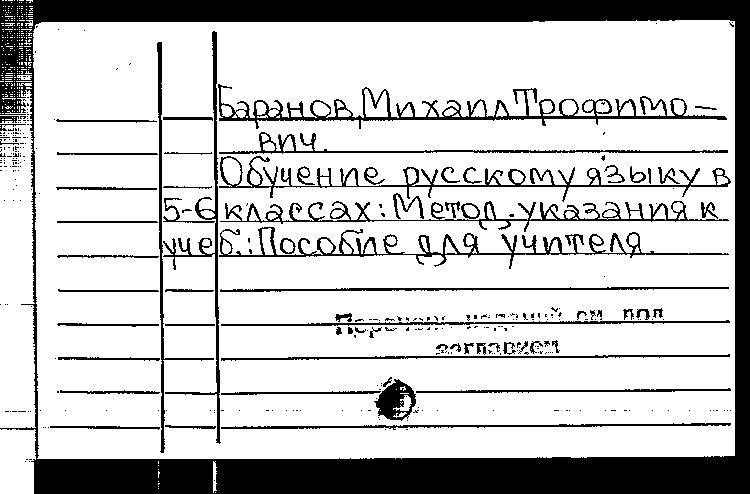 Баранов, Михаил Трофимо-
вич.
Обучение русскому языку в
5-6 классах: Метод. указания к
учеб.: Пособие для учителя.
Перечень изданий см. под
заглавием